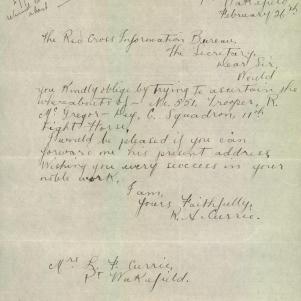 Wakefield
February 26th
The Red Cross Information Bureau.
The Secretary,
Dear Sir,
Would
you kindly oblige by trying to ascertain the
whereabouts of - No 551. Trooper, R.
McGregor - Day, C. Squadron, 11th
Light Horse,
I would be pleased if you can
forward me his present address
Wishing you every success in your
noble work.
I am,
Yours Faithfully,
R. A. Currie.
Mrs R. A. Currie,
Pt Wakefield.